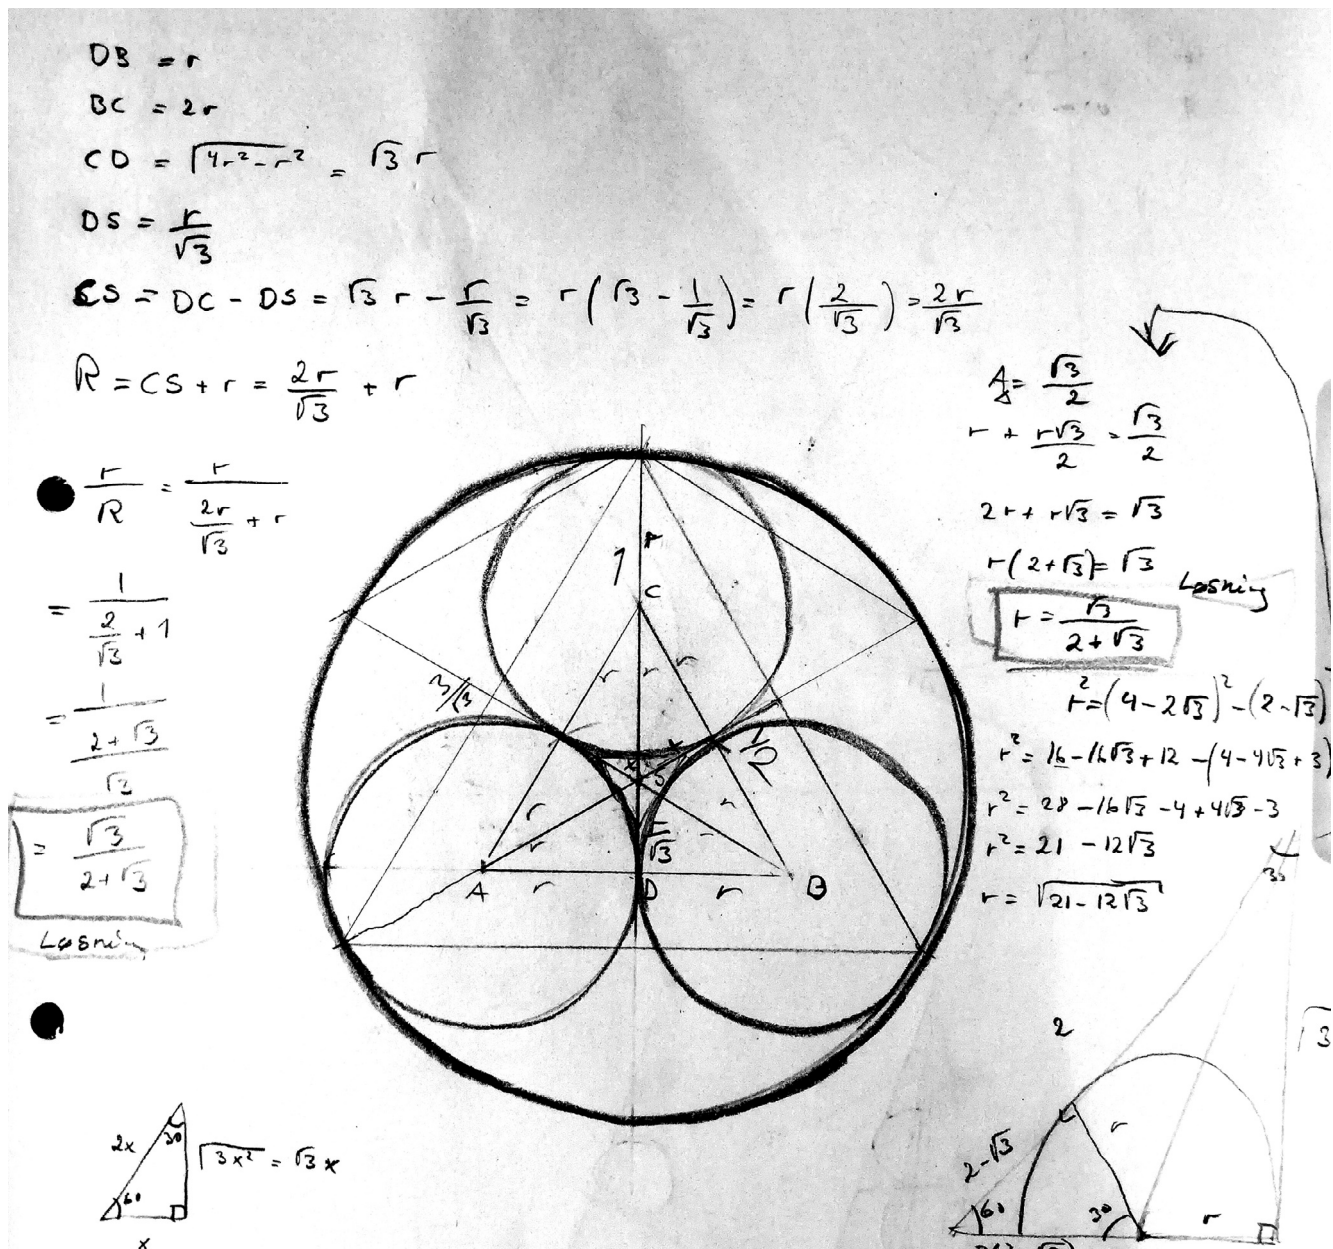 DB = r
BC = 2r
CD = √(4r² - r²) = √3 r
DS = r/√3
CS = DC - DS = √3 r - r/√3 = r(√3 - 1/√3) = r(2/√3) = 2r/√3
R = CS + r = 2r/√3 + r
r/R = r/(2r/√3 + r)
= 1/(2/√3 + 1)
= 1/((2+√3)/√3)
= √3/(2+√3)
Løsning
A = √3/2
r + r√3/2 = √3/2
2r + r√3 = √3
r(2+√3) = √3
Løsning
r = √3/(2+√3)
r² = (4-2√3)² - (2-√3)²
r² = 16 - 16√3 + 12 - (4 - 4√3 + 3)
r² = 28 - 16√3 - 4 + 4√3 - 3
r² = 21 - 12√3
r = √(21-12√3)
r
1
C
r r r
3/√3
r
r
r/√3
A r D r B
30
2
√3
2-√3
r
60 30 r
2x 30 √(3x²) = √3 x
60
x